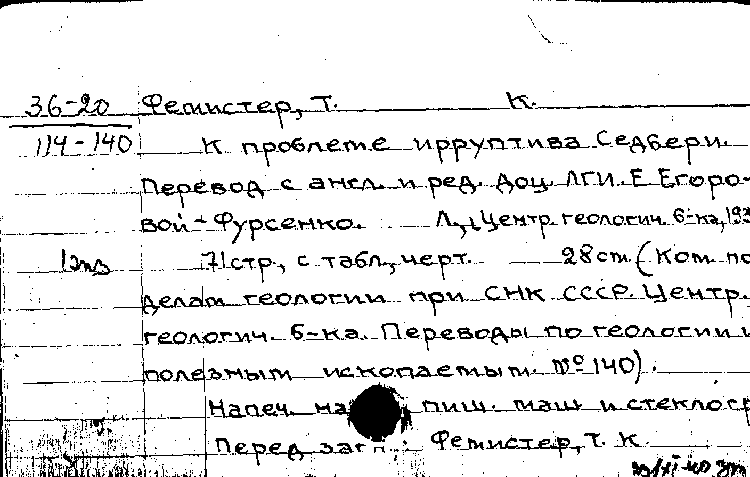 36-20 Фемистер, Т. К.
114-140 К проблеме ирруптива Седбери.
Перевод с англ. и ред. Доц. ЛГИ. Е Егоро-
вой-Фурсенко. Л., Центр. геологич. б-ка, 193
1экз 71стр., с табл., черт. 28см. (Ком. по
делам геологии при СНК СССР. Центр.
геологич. б-ка. Переводы по геологии и
полезным ископаемым. № 140).
Напеч. на пиш. маш и стеклогр
Перед загл.: Фемистер, Т. К.